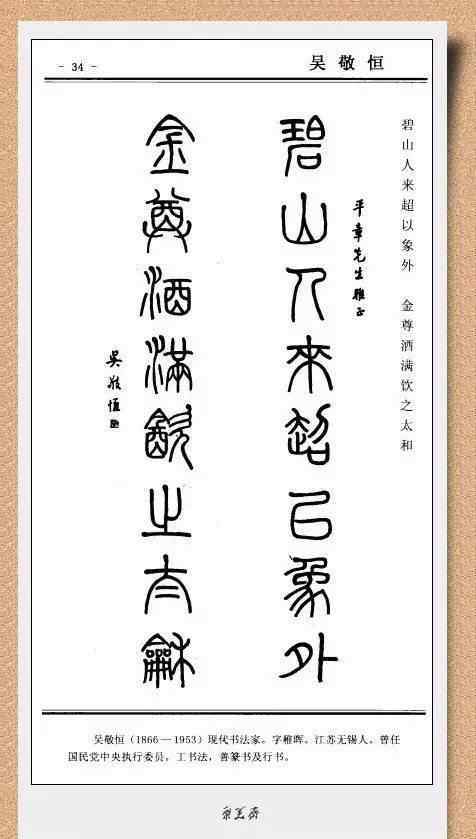 - 34 -
吴敬恒
碧山人来超以象外 金尊酒满饮之太和
平章先生雅正
碧山人来超㠯象外
金尊酒满饮之太龢
吴敬恒
吴敬恒(1866—1953)现代书法家。字稚晖。江苏无锡人，曾任
国民党中央执行委员，工书法，善篆书及行书。